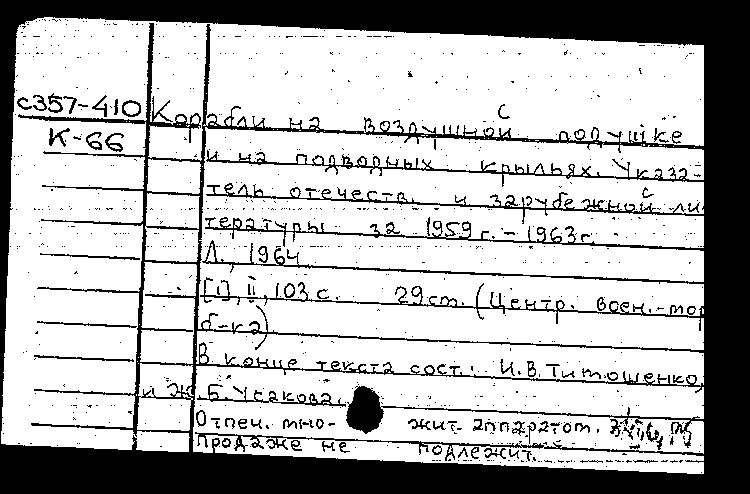 с357-410 Корабли на воздушной подушке
К-66 и на подводных крыльях. Указа-
тель отечеств. и зарубежной ли
тературы за 1959 г. - 1963 г.
Л., 1964
[1], II, 103 с. 29 см. (Центр. воен.-мор
б-ка)
В конце текста сост.: И.В. Титошенко,
и Ж.Б. Усакова.
Отпеч. мно- жит. аппаратом.
продаже не подлежит.